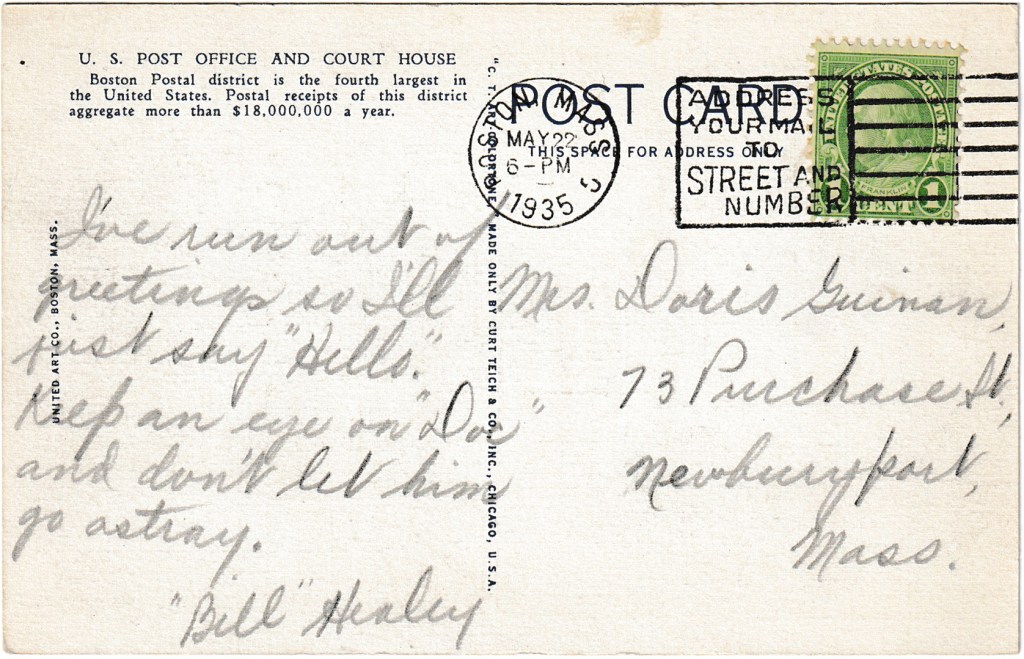 U. S. POST OFFICE AND COURT HOUSE
Boston Postal district is the fourth largest in
the United States. Postal receipts of this district
aggregate more than $18,000,000 a year.
UNITED ART CO., BOSTON, MASS.
I've run out of
greetings so I'll
just say "Hello".
Keep an eye on "Doc"
and don't let him
go astray.
"Bill" Healey
"C. T. ART-COLORTONE" MADE ONLY BY CURT TEICH & CO., INC., CHICAGO, U.S.A.
POST CARD
THIS SPACE FOR ADDRESS ONLY
BOSTON MASS
MAY 22
6-PM
1935
5
ADDRESS
YOUR MAIL
TO
STREET AND
NUMBER
FRANKLIN
1 CENT 1
Mrs. Doris Guinan,
73 Purchase St,
Newburyport,
Mass.